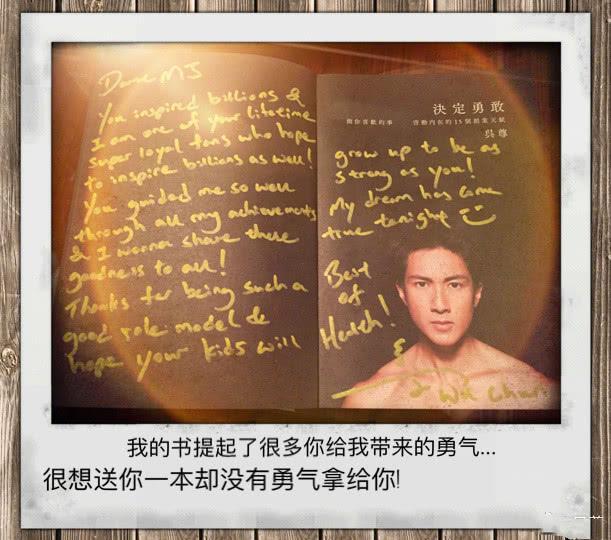 Dear MJ
You inspired billions &
I am one of your lifetime
super loyal fans who hope
to inspire billions as well!
You guided me so well
through all my achievements
& I wanna share these
goodness to all!
Thanks for being such a
good role model &
hope your kids will
決定勇敢
做你喜歡的事 啓動內在的15個創業天賦
吳尊
grow up to be as
strong as you!
My dream has come
true tonight
Best
of
Health!
Wu Chun
我的书提起了很多你给我带来的勇气...
很想送你一本却没有勇气拿给你!